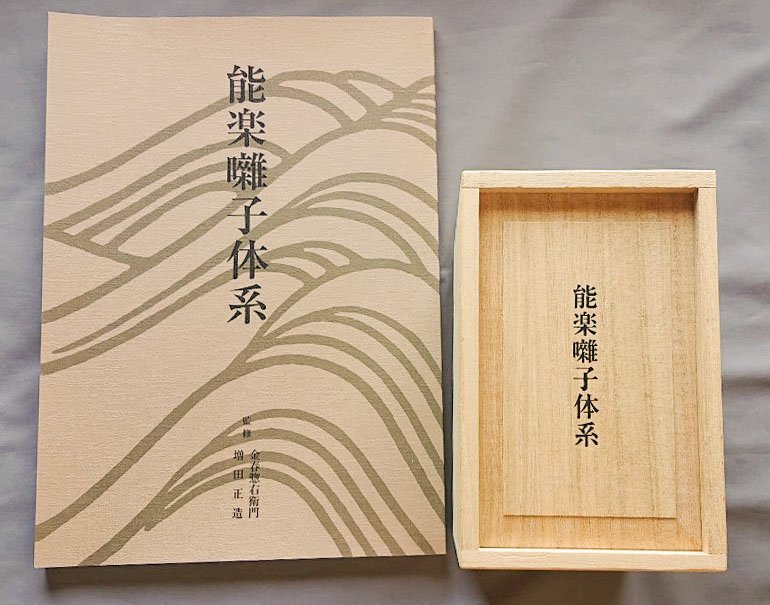 能楽囃子体系
監修
金春惣右衛門
増田正造
能楽囃子体系